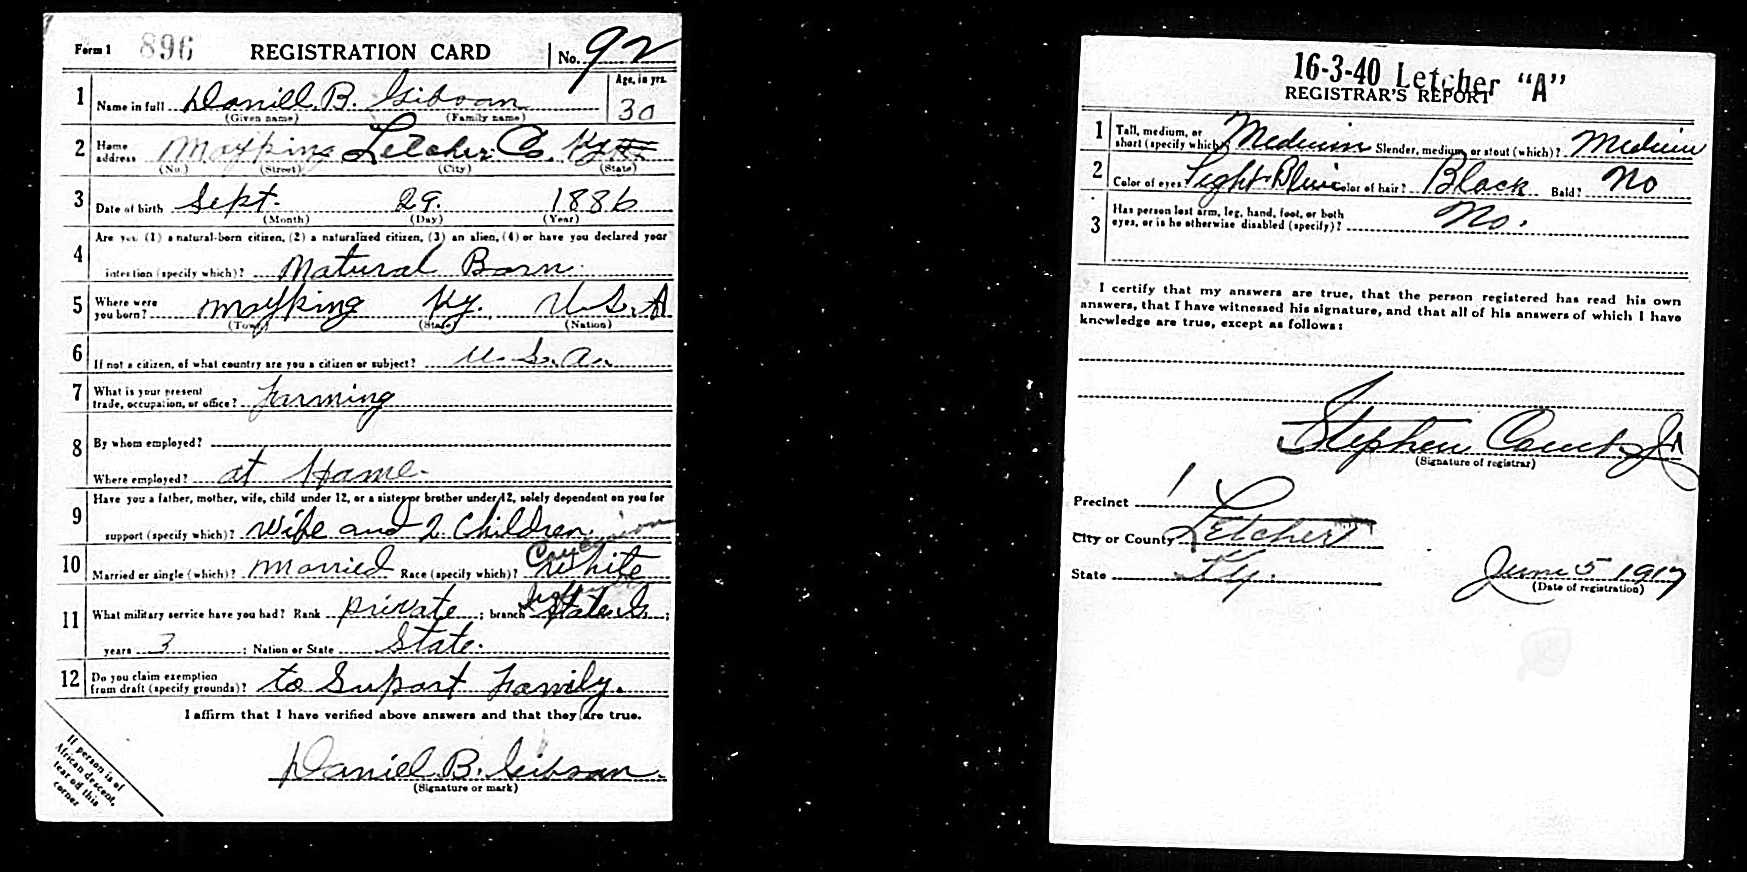 Form 1 896 REGISTRATION CARD No. 92
1 Name in full Daniel. B. Gibson Age, in yrs. 30
(Given name) (Family name)
2 Home address Mayking Letcher Co. Ky
(No.) (Street) (City) (State)
3 Date of birth Sept. 29. 1886
(Month) (Day) (Year)
4 Are you (1) a natural-born citizen, (2) a naturalized citizen, (3) an alien, (4) or have you declared your
intention (specify which)? Natural Born
5 Where were you born? Mayking Ky. U.S.A
(Town) (State) (Nation)
6 If not a citizen, of what country are you a citizen or subject? U.S.A.
7 What is your present
trade, occupation, or office? Farming
8 By whom employed?
Where employed? at Home.
9 Have you a father, mother, wife, child under 12, or a sister or brother under 12, solely dependent on you for
support (specify which)? Wife and 2 Children.
Caucasion
10 Married or single (which)? Married Race (specify which)? White
11 What military service have you had? Rank private ; branch State G. ;
years 3 ; Nation or State State.
12 Do you claim exemption
from draft (specify grounds)? to Suport Family.
I affirm that I have verified above answers and that they are true.
Daniel. B. Gibson.
(Signature or mark)
If person is of
African descent,
tear off this
corner
16-3-40 Letcher "A"
REGISTRAR'S REPORT
1 Tall, medium, or
short (specify which)? Medium Slender, medium, or stout (which)? Medium
2 Color of eyes Light Blue Color of hair? Black Bald? No
3 Has person lost arm, leg, hand, foot, or both
eyes, or is he otherwise disabled (specify)? No.
I certify that my answers are true, that the person registered has read his own
answers, that I have witnessed his signature, and that all of his answers of which I have
knowledge are true, except as follows:
Stephen Combs Jr
(Signature of registrar)
Precinct 1
City or County Letcher
State Ky. June 5 1917
(Date of registration)